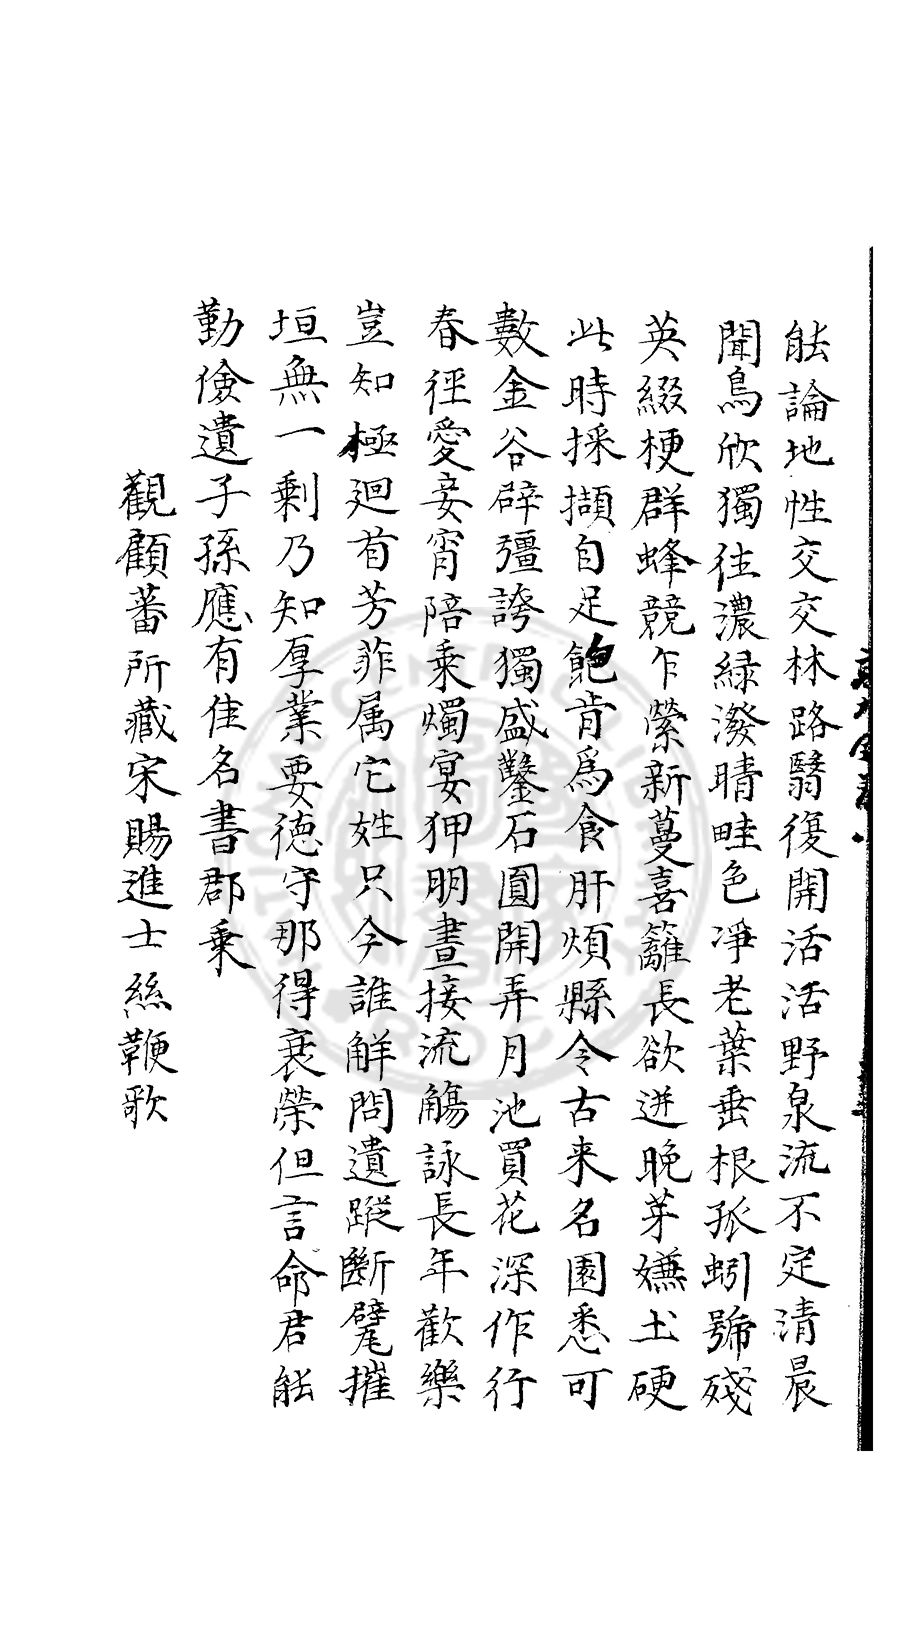 能論地性交交林路翳復開活活野泉流不定清晨
聞鳥欣獨往濃綠潑晴畦色凈老葉垂根孤蚓號殘
英綴梗群蜂競乍縈新蔓喜籬長欲迸晚芽嫌土硬
此時採擷自足飽肯爲食肝煩縣令古来名園悉可
數金谷辟彊誇獨盛鑿石圓開弄月池買花深作行
春徑愛妾宵陪乗燭宴狎朋晝接流觴詠長年歡樂
豈知極迴首芳菲属它姓只今誰解問遺蹤斷甓摧
垣無一剩乃知厚業要德守那得衰榮但言命君能
勤儉遺子孫應有佳名書郡乗
觀顧蕃所藏宋賜進士絲鞭歌